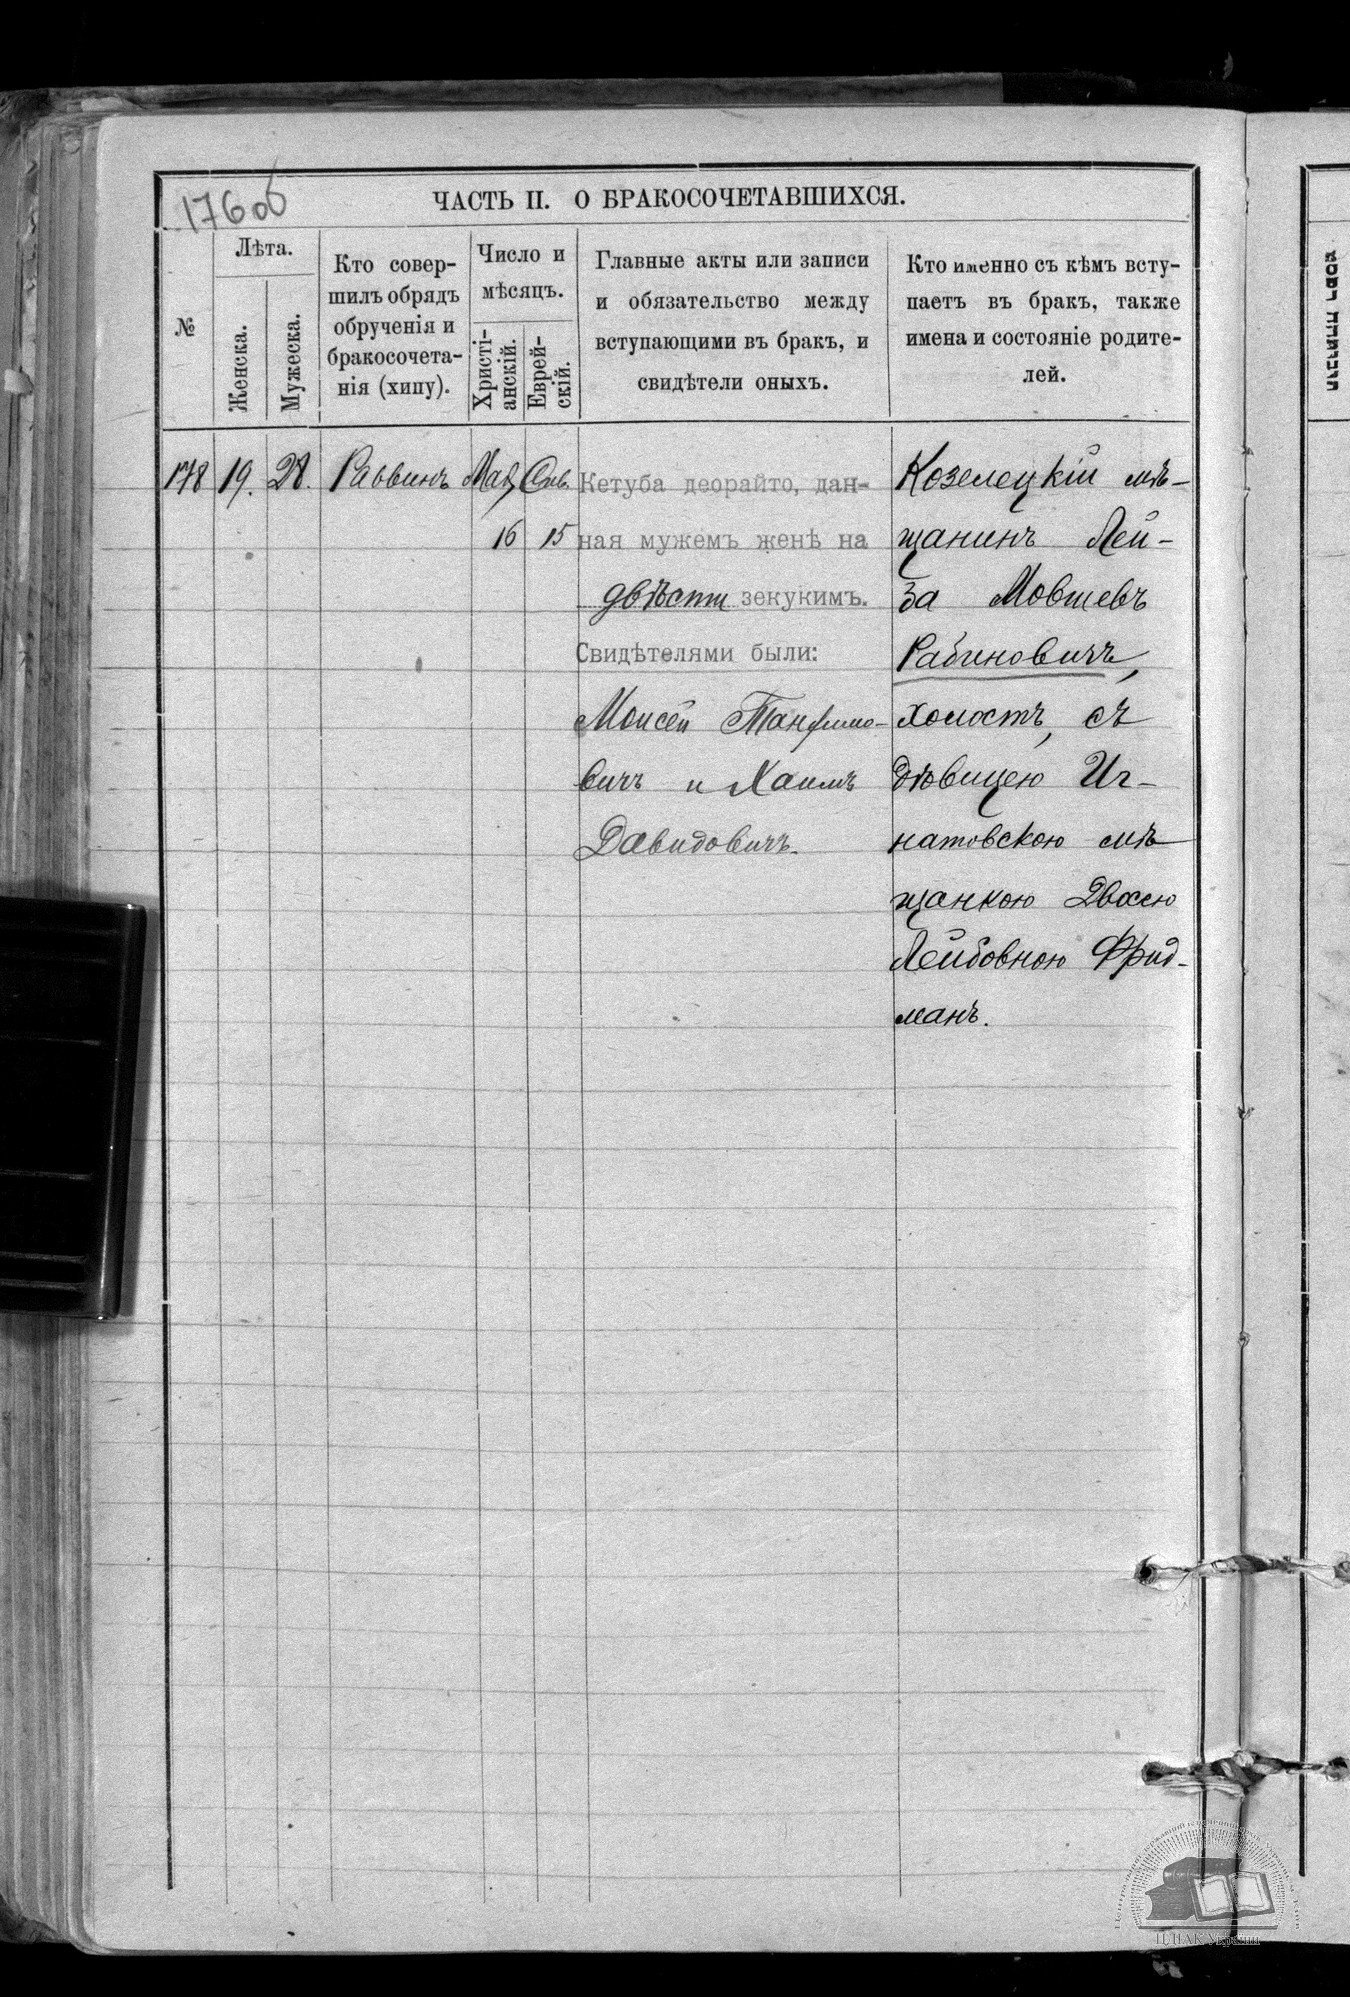 176об
ЧАСТЬ II. О БРАКОСОЧЕТАВШИХСЯ.
№
Лѣта.
Женска.
Мужеска.
Кто совер-
шилъ обрядъ
обрученія и
бракосочета-
нія (хипу).
Число и
мѣсяцъ.
Христі-
анскій.
Еврей-
скій.
Главные акты или записи
и обязательство между
вступающими въ бракъ, и
свидѣтели оныхъ.
Кто именно съ кѣмъ всту-
паетъ въ бракъ, также
имена и состояніе родите-
лей.
178
19.
28.
Раввинъ
16
15
Кетуба деорайто, дан-
ная мужемъ женѣ на
двѣсти зекукимъ.
Свидѣтелями были:
Моисей
вичъ и Хаимъ
Давидовичъ.
Козелецкій мѣ-
щанинъ Лей-
за Мовшевъ
Рабиновичъ,
холостъ, съ
дѣвицею Иг-
натовскою мѣ
щанкою Двосею
Лейбовною Фрид-
манъ.
ЦДІАК України